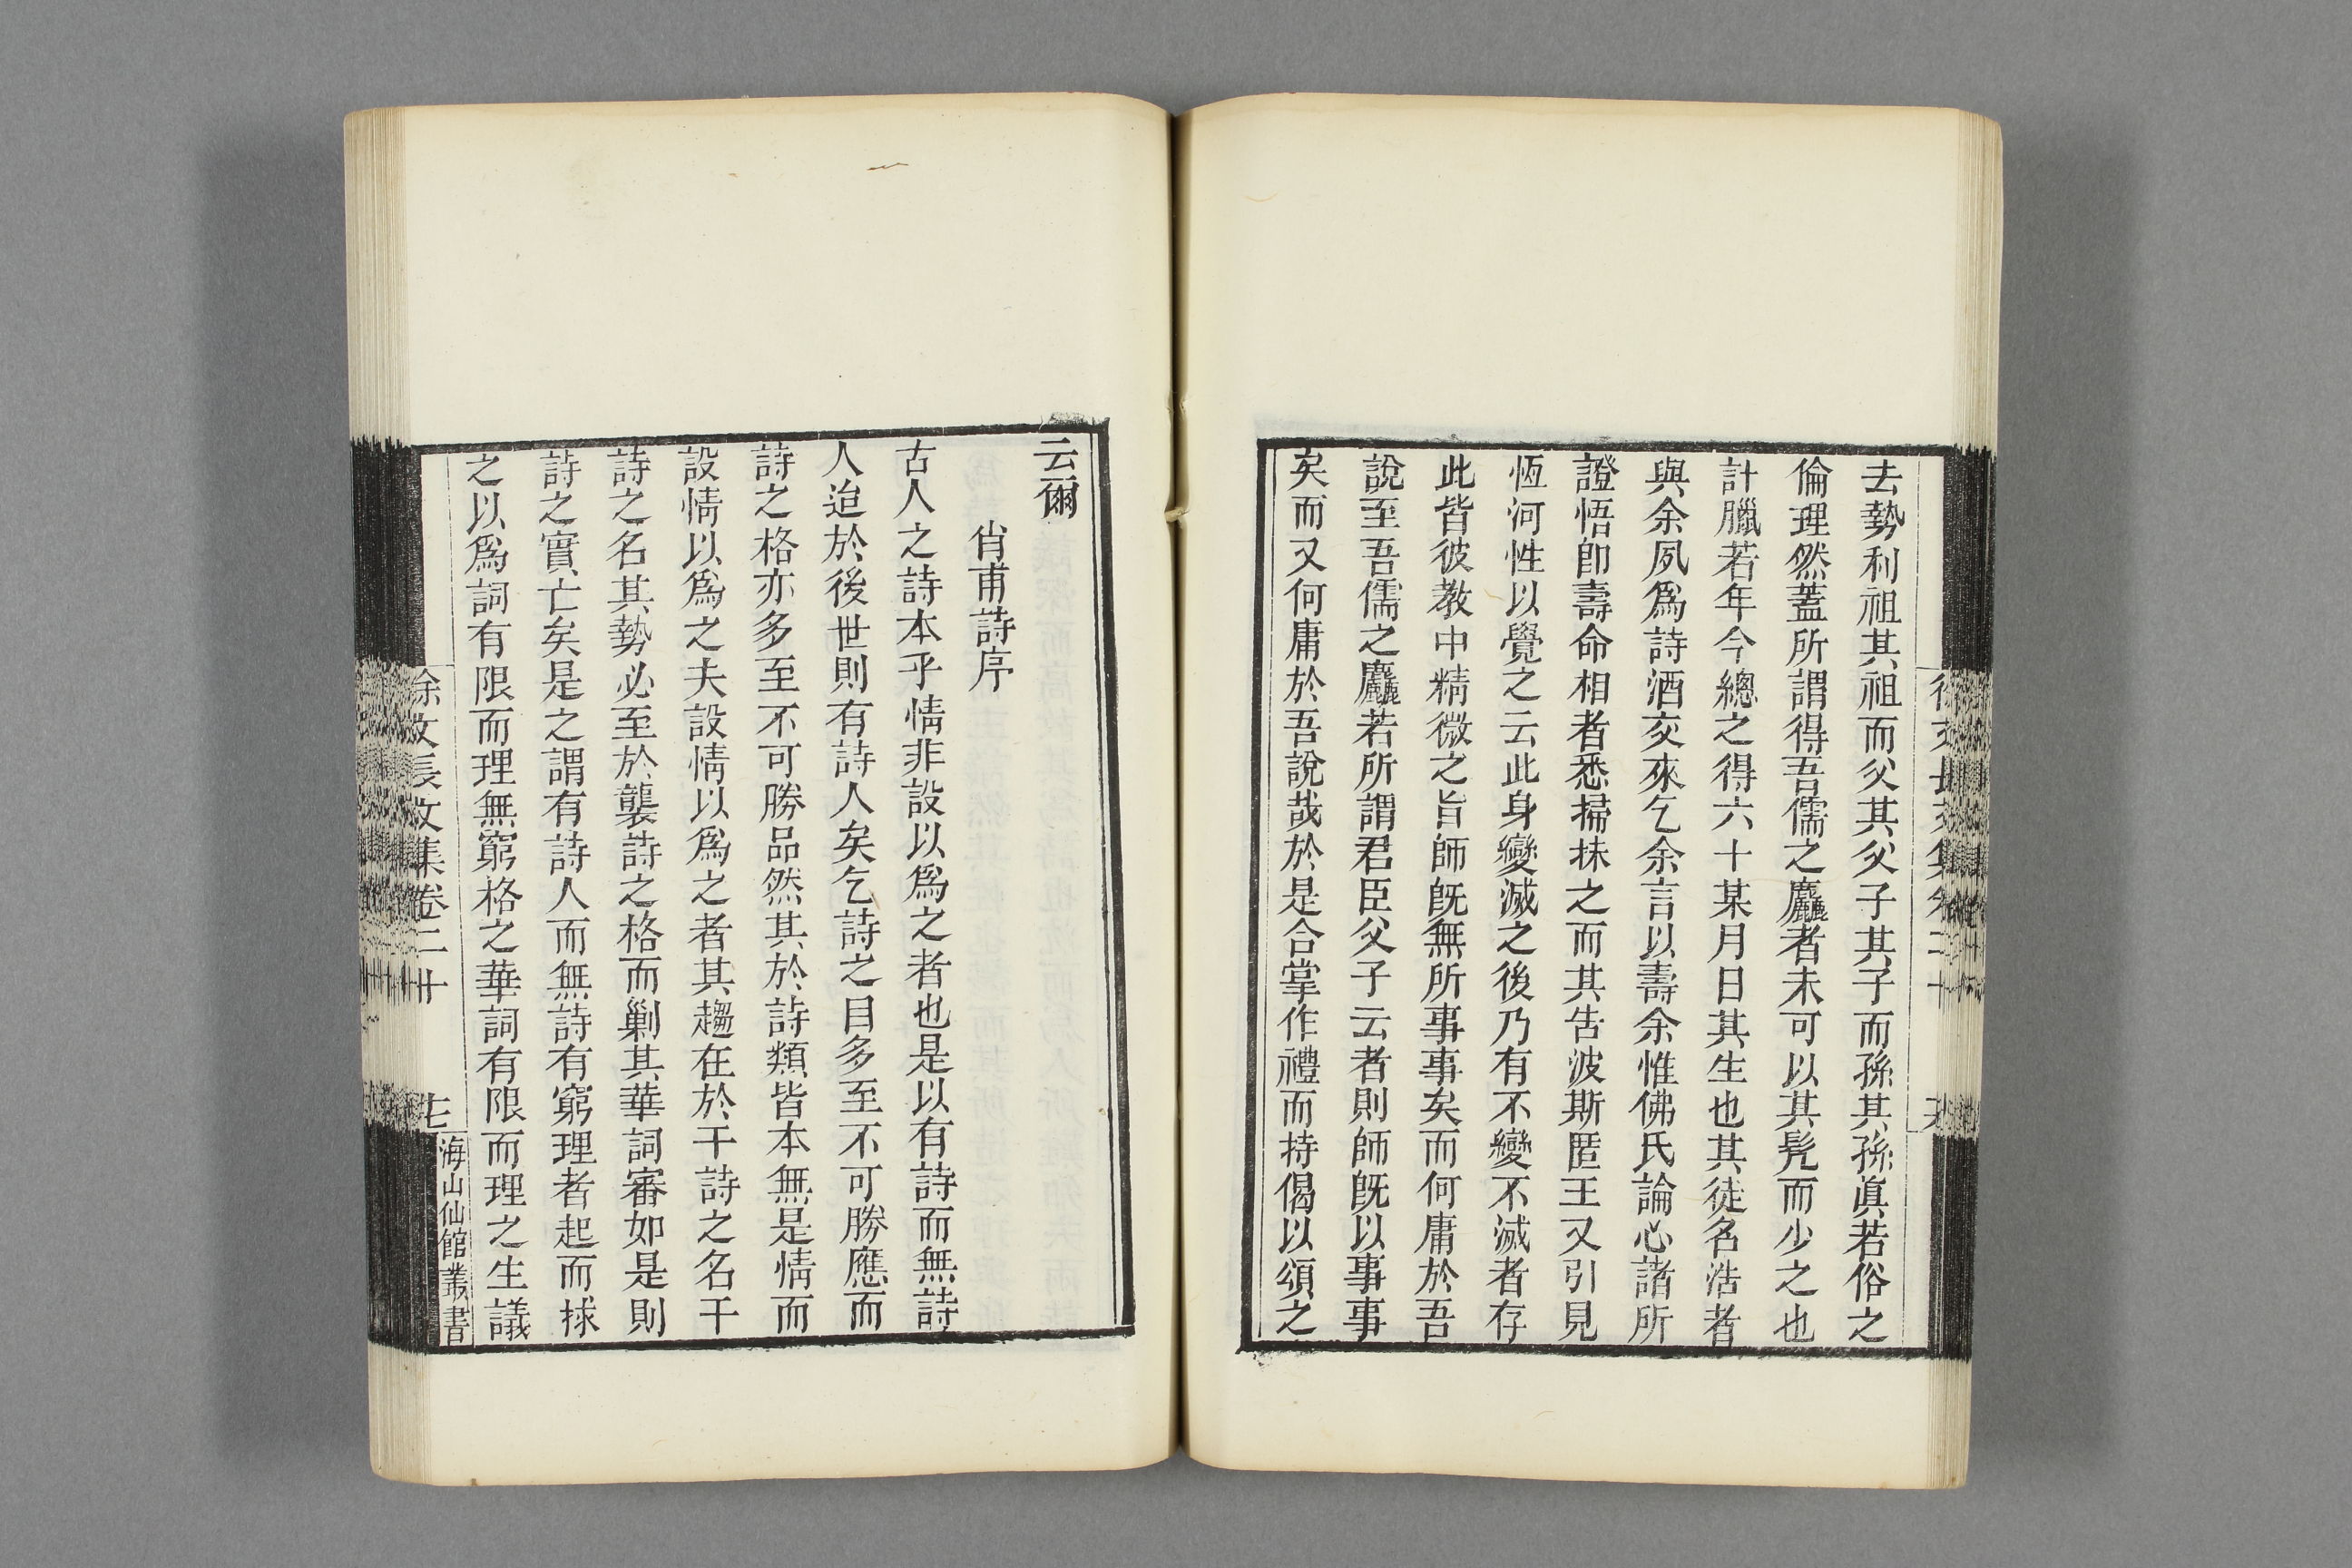 去勢利祖其祖而父其父子其子而孫其孫眞若俗之
倫理然蓋所謂得吾儒之麤者未可以其髠而少之也
計臘若年今總之得六十某月日其生也其徒名浩者
與余夙爲詩酒交來乞余言以壽余惟佛氏論心諸所
證悟卽壽命相者悉掃抹之而其吿波斯匿王又引見
恆河性以覺之云此身變滅之後乃有不變不滅者存
此皆彼敎中精微之旨師旣無所事事矣而何庸於吾
說至吾儒之麤若所謂君臣父子云者則師旣以事事
矣而又何庸於吾說哉於是合掌作禮而持偈以頌之
云爾
肖甫詩序
古人之詩本乎情非設以爲之者也是以有詩而無詩
人迨於後世則有詩人矣乞詩之目多至不可勝應而
詩之格亦多至不可勝品然其於詩類皆本無是情而
設情以爲之夫設情以爲之者其趨在於干詩之名干
詩之名其勢必至於襲詩之格而剿其華詞審如是則
詩之實亡矣是之謂有詩人而無詩有窮理者起而捄
之以爲詞有限而理無窮格之華詞有限而理之生議
徐文長文集卷二十
七
海山仙館叢書